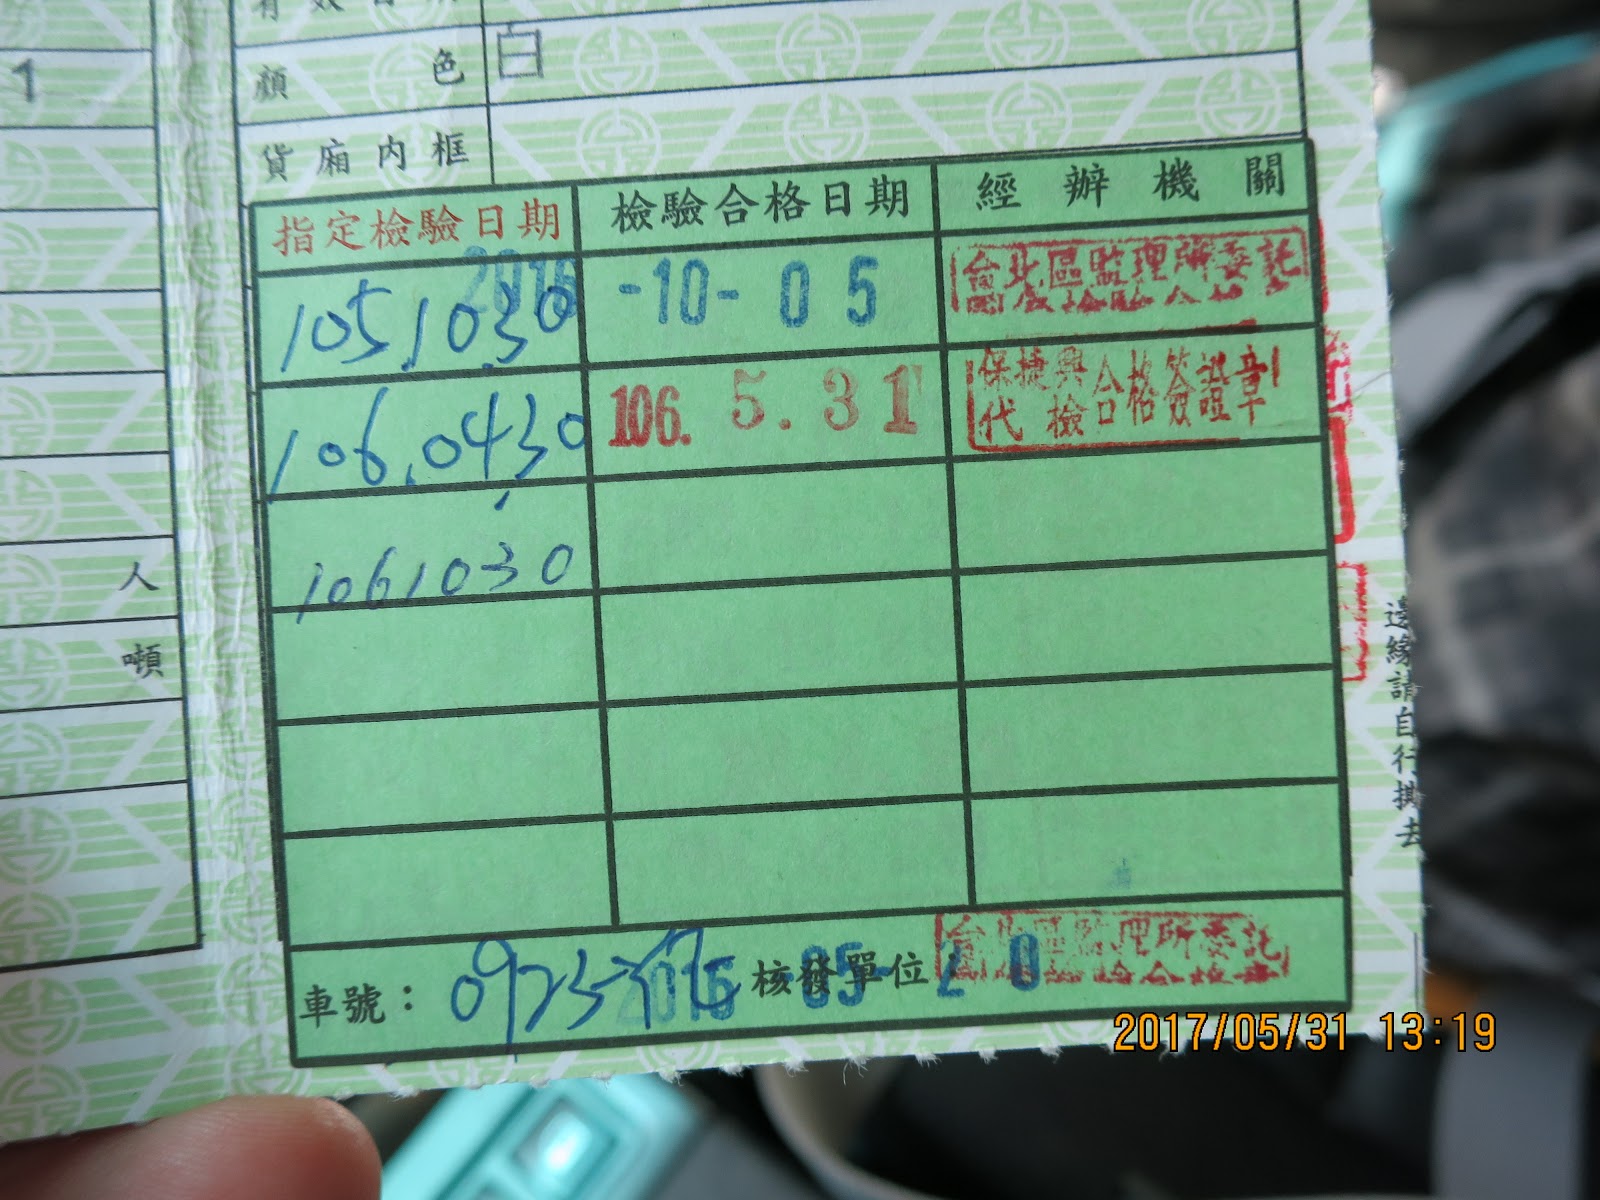 1
顏色 白
貨廂内框
指定檢驗日期 檢驗合格日期 經辦機關
105.10.30 2016-10-05 台北區監理所委託
106.04.30 106. 5. 31 保捷興代檢合格簽證章
1061030
人
噸
車號: 0923 2016 05 20 核發單位 台北區監理所委託
邊緣請自行撕去
2017/05/31 13:19